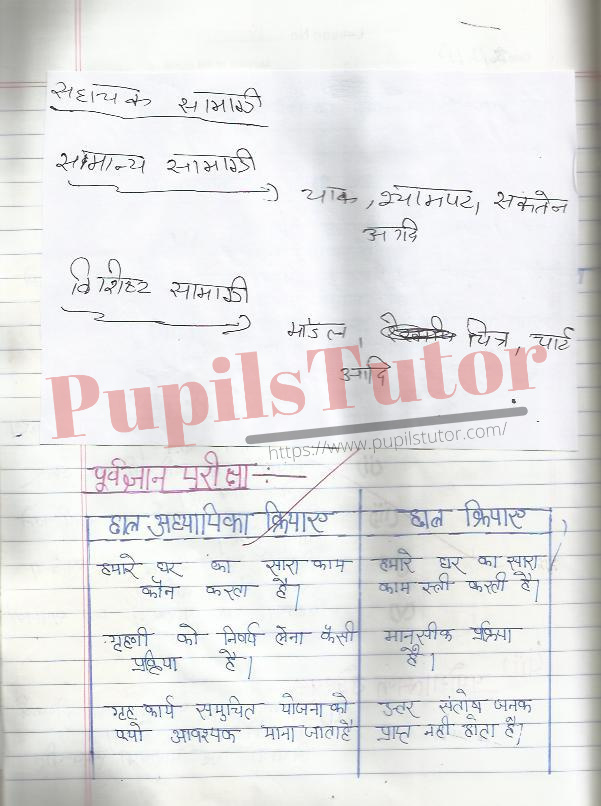 सहायक सामाग्री
सामान्य सामाग्री
चाक, श्यामपट, सकंतेन
आदि
विशिष्ट सामाग्री
मांडल, चित्र, चार्ट
आदि
PupilsTutor
https://www.pupilstutor.com/
पूर्वज्ञान परीक्षा :-
छात्र अध्यापिका क्रियाएं छात्र क्रियाएं
हमारे घर का सारा काम हमारे घर का सारा
कौन करता है। काम स्त्री करती है।
गृहणी को निर्णय लेना कैसी मानसीक प्रक्रिया
प्रक्रिया है। है।
गृह कार्य समुचित योजना को उत्तर संतोष जनक
क्यो आवश्यक माना जाता है प्राप्त नही होता है।